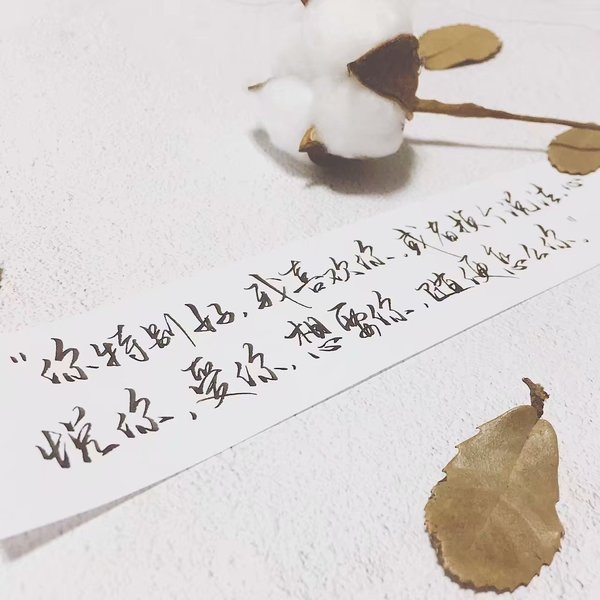 “你特别好,我喜欢你,或者换个说法,心
悦你,爱你,想要你,随便怎么你”